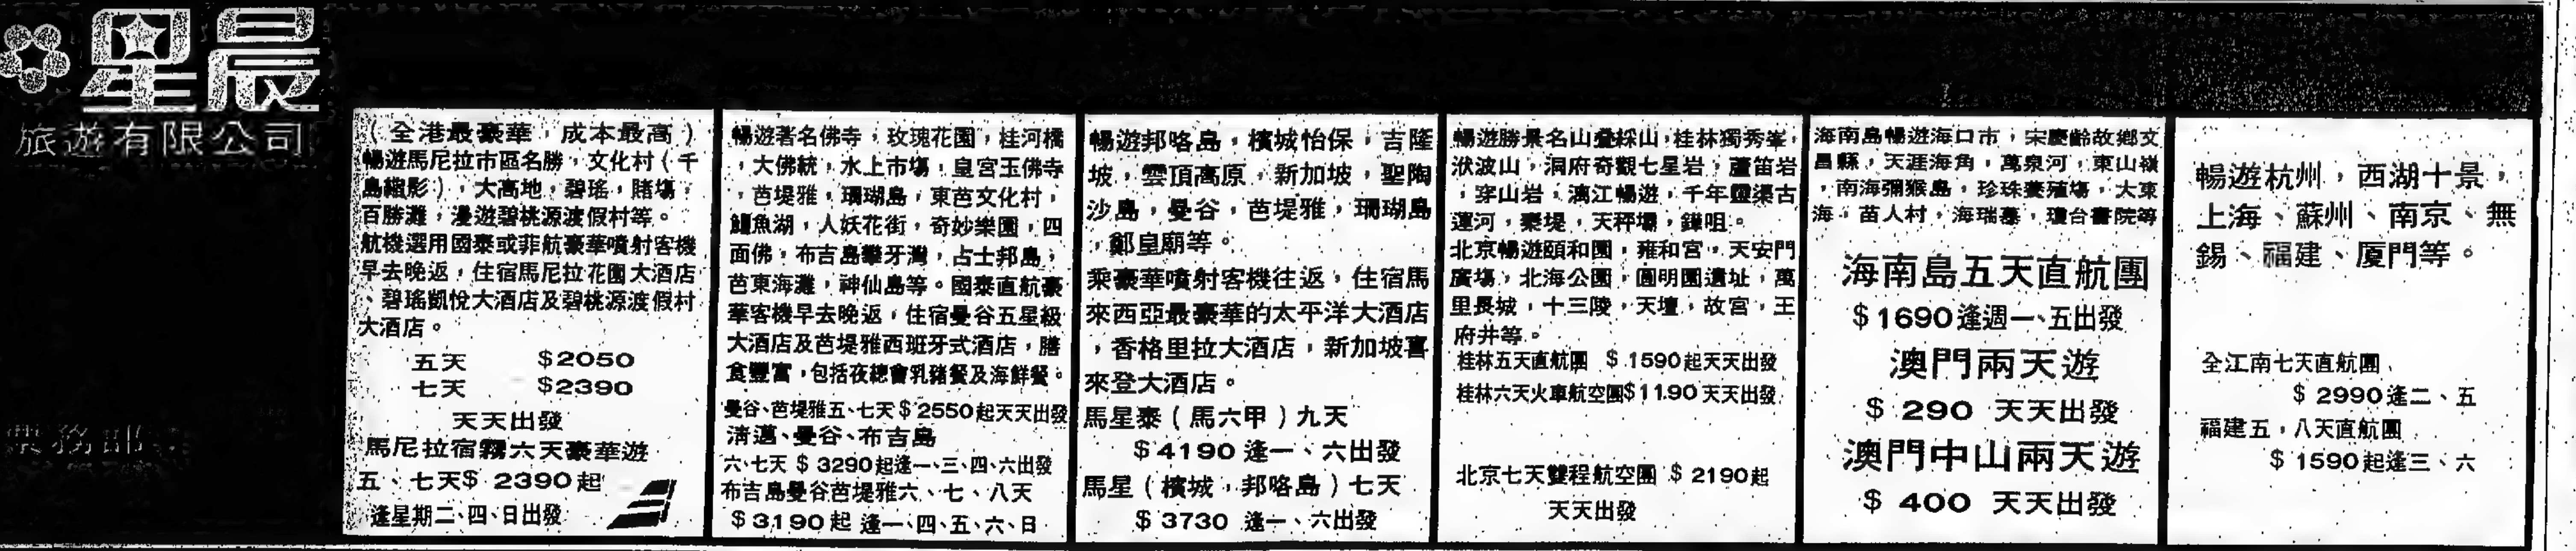 星晨
旅遊有限公司
（全港最豪華，成本最高）
暢遊馬尼拉市區名勝，文化村（千
島縮影），大高地，碧瑤，賭場，
百勝灘，漫遊碧桃源渡假村等。
航機選用國泰或菲航豪華噴射客機
早去晚返，住宿馬尼拉花園大酒店
、碧瑤凱悅大酒店及碧桃源渡假村
大酒店。
五天 $2050
七天 $2390
天天出發
馬尼拉宿霧六天豪華遊
五、七天$ 2390起
逢星期二、四、日出發
暢遊著名佛寺，玫瑰花園，桂河橋
，大佛統，水上市場，皇宮玉佛寺
，芭堤雅，珊瑚島，東芭文化村，
鱷魚湖，人妖花街，奇妙樂園，四
面佛，布吉島攀牙灣，占士邦島，
芭東海灘，神仙島等。國泰直航豪
華客機早去晚返，住宿曼谷五星級
大酒店及芭堤雅西班牙式酒店，膳
食豐富，包括夜總會乳豬餐及海鮮餐。
曼谷、芭堤雅五、七天$2550起天天出發
清邁、曼谷、布吉島
六、七天 $ 3290起逢一、三、四、六出發
布吉島曼谷芭堤雅六、七、八天
$3190起 逢一、四、五、六、日
暢遊邦咯島，檳城怡保，吉隆
坡，雲頂高原，新加坡，聖陶
沙島，曼谷，芭堤雅，珊瑚島
，鄭皇廟等。
乘豪華噴射客機往返，住宿馬
來西亞最豪華的太平洋大酒店
，香格里拉大酒店，新加坡喜
來登大酒店。
馬星泰（馬六甲）九天
$4190逢一、六出發
馬星（檳城，邦咯島）七天
$ 3730 逢一、六出發
暢遊勝景名山疊綵山，桂林獨秀峯，
洑波山，洞府奇觀七星岩，蘆笛岩
，穿山岩，漓江暢遊，千年靈渠古
運河，秦堤，天秤壩，鏵咀。
北京暢遊頤和園，雍和宮，天安門
廣場，北海公園，圓明園遺址，萬
里長城，十三陵，天壇，故宮，王
府井等。
桂林五天直航團 $ 1590起天天出發
桂林六天火車航空團$1190天天出發
北京七天雙程航空團 $ 2190起
天天出發
海南島暢遊海口市，宋慶齡故鄉文
昌縣，天涯海角，萬泉河，東山嶺
，南海獼猴島，珍珠養殖場，大東
海，苗人村，海瑞墓，瓊台書院等
海南島五天直航團
$1690逢週一、五出發
澳門兩天遊
$ 290 天天出發
澳門中山兩天遊
$ 400 天天出發
暢遊杭州，西湖十景，
上海、蘇州、南京、無
錫、福建、厦門等。
全江南七天直航團
$ 2990逢二、五
福建五，八天直航團
$ 1590起逢三、六